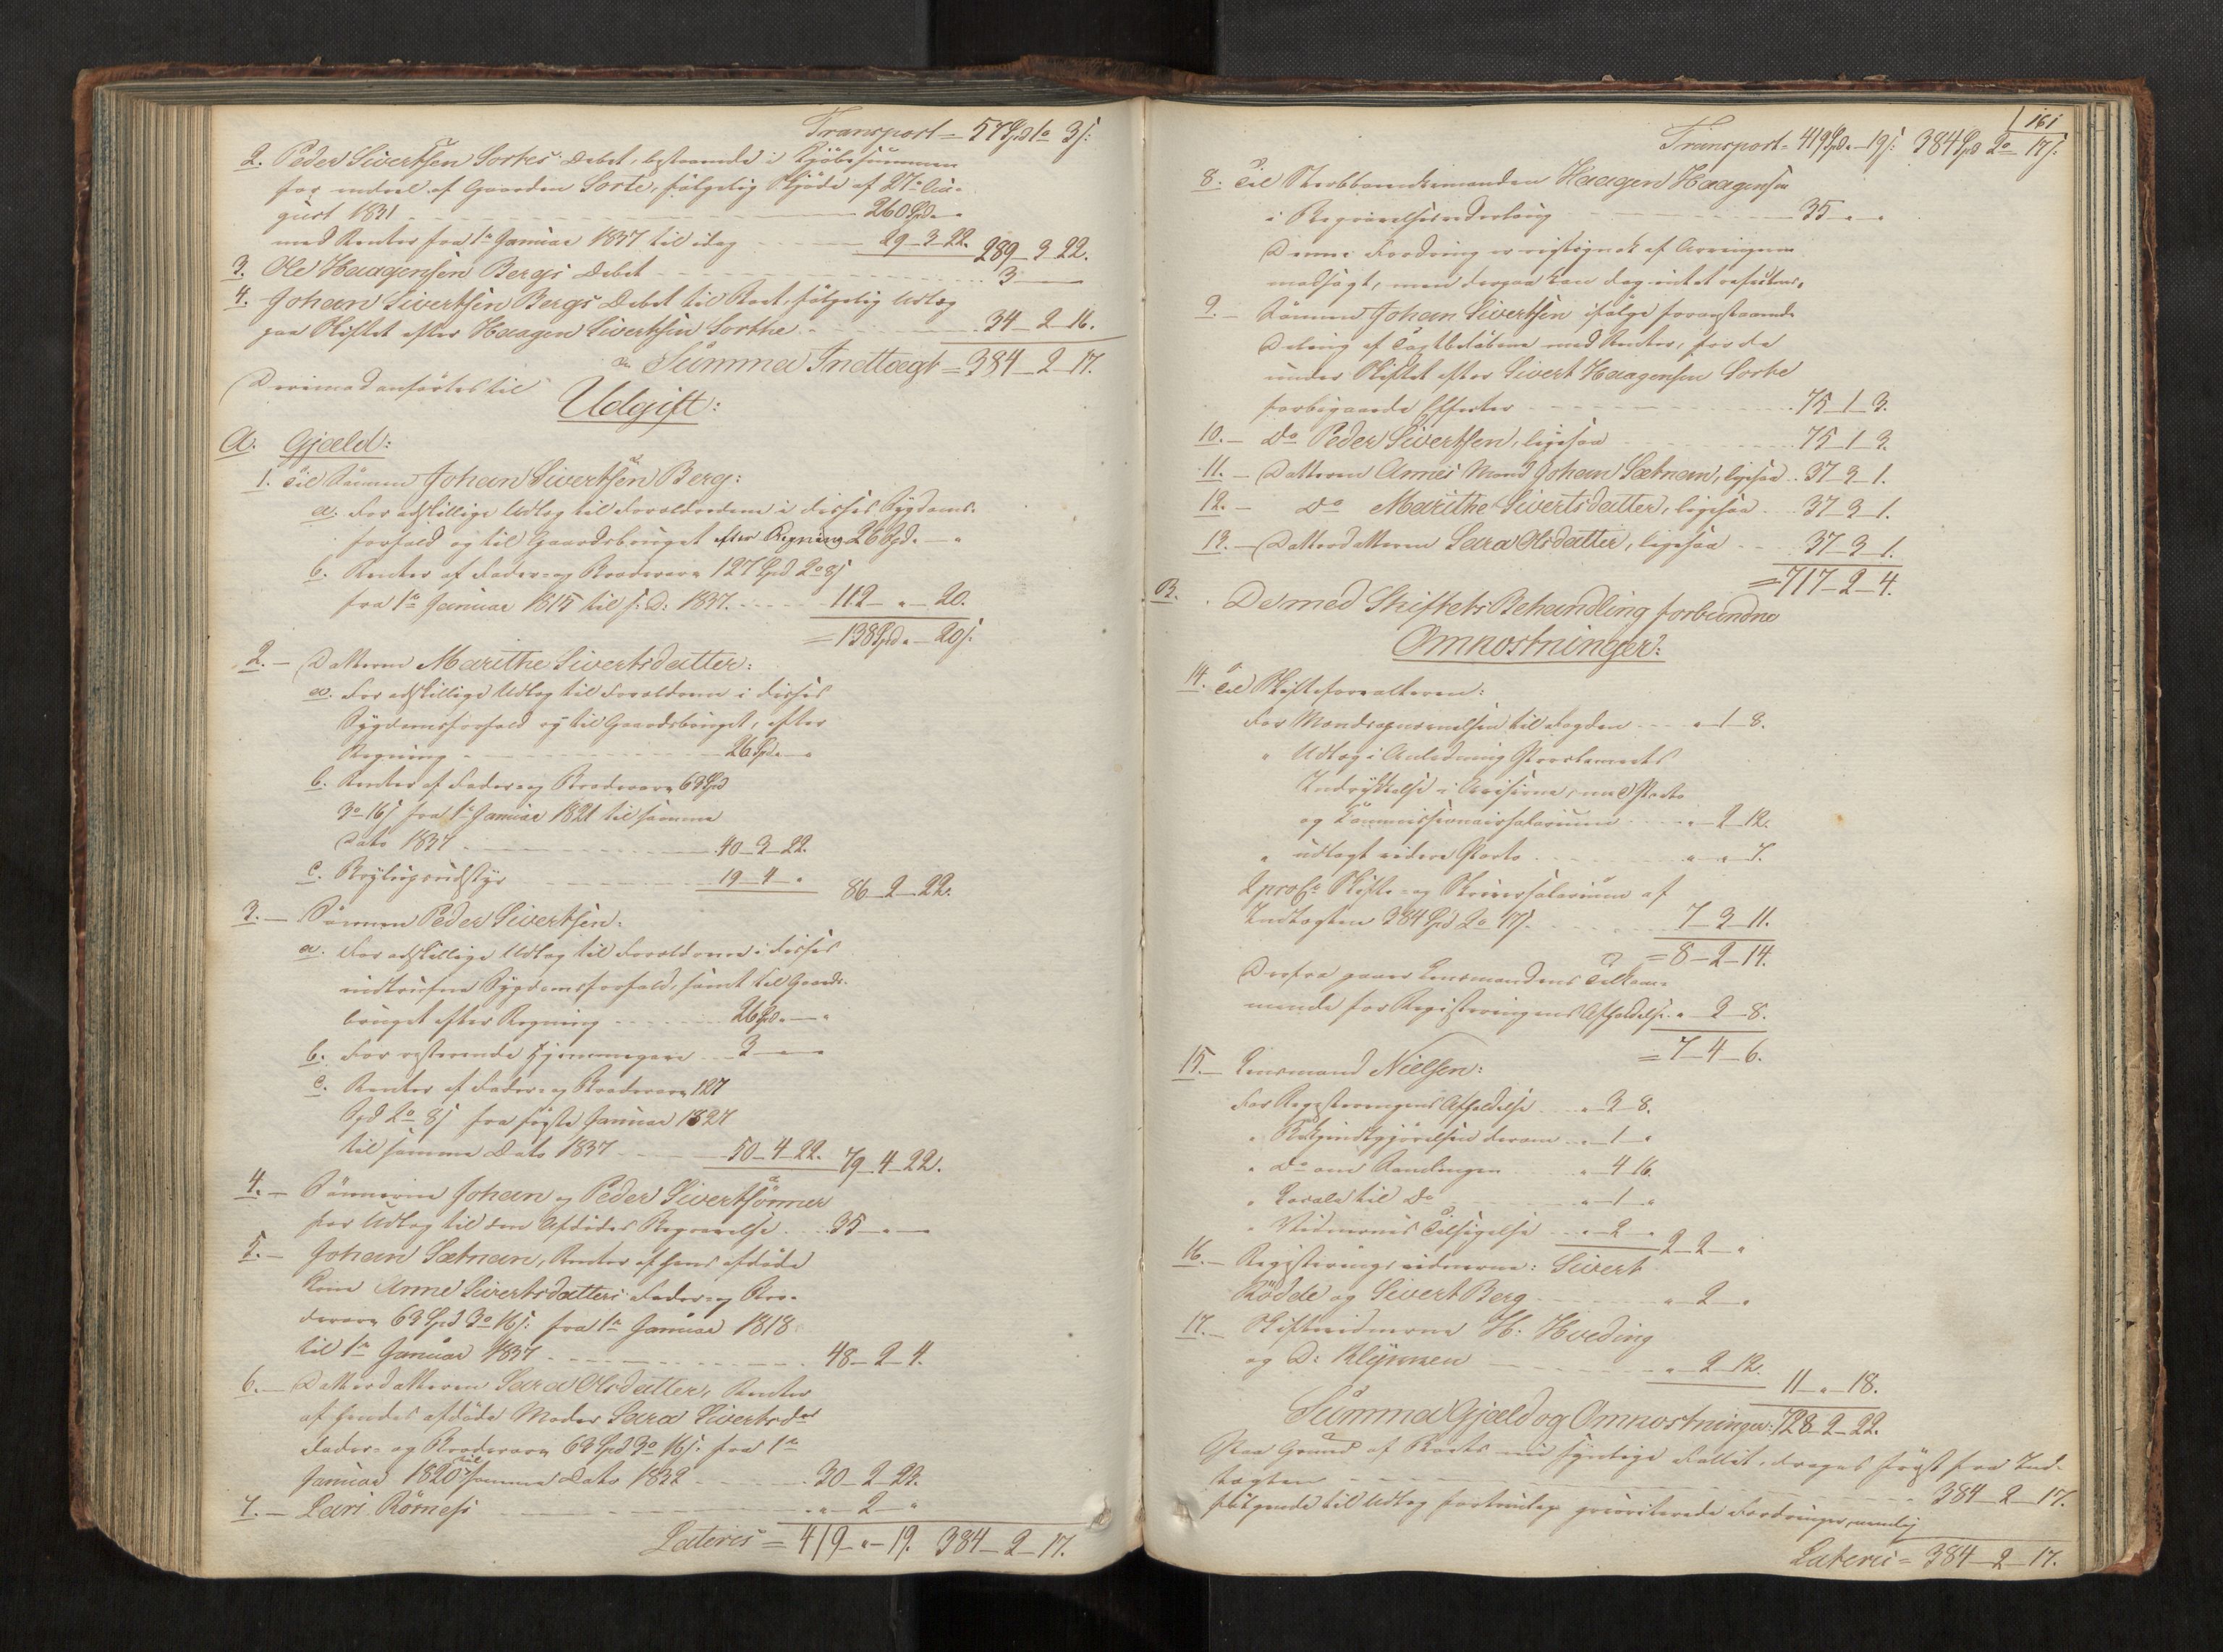 Transport = 57 Spd 1o 3 s:
2. Peder Sivertsen Sortes Debet, bestaaende i Kjøbesummen
for endeel af Gaarden Sorte, følgelig Skjøde af 27de Au-
gust 1831 260 Spd. "
med Renter fra 1ste Januar 1837 til idag 29-3-22. 289-3-22.
3. Ole Haagensen Bergs Debet 3
4. Johan Sivertsen Bergs Debet til Boet, følgelig Udlæg
paa Skiftet efter Haagen Sivertsen Sorthe 34-2-16.
Summa Indtægt = 384-2-17.
Derimod anføres til
Udgift:
A. Gjæld:
1. Til Sønnen Johan Sivertsen Berg:
a. For adskillige Udlæg til Forældrene i disses Sygdoms-
forfald og til Gaardsbruget efter Regning 26 Spd. "
b. Renter af Fader- og Broderarv 127 Spd 2o 8 s
fra 1ste Januar 1815 til s: D: 1837. 112-"-20.
= 138 Spd " 20 s:
2. - Datteren Marithe Sivertsdatter:
a. For adskillige Udlæg til Forældrene i disses
Sygdomsforfald og til Gaardsbruget, efter
Regning 26 Spd. "
b. Renter af Fader- og Broderarv 63 Spd
3o 16 s fra 1ste Januar 1821 til samme
Dato 1837 40-3-22.
c. Bryllupsudstyr 19-4-" 86-2-22.
3. - Sønnen Peder Sivertsen:
a. For adskillige Udlæg til Forældrene i disses
indtrufne Sygdomsforfald, samt til Gaards-
bruget efter Regning 26 Spd. "
b. For resterende Hjemmegave 3
c. Renter af Fader- og Broderarv 127
Spd 2o 8 s fra første Januar 1827
til samme Dato 1837 50-4-22. 79-4-22.
4. - Sønnerne Johan og Peder Sivertsønner
for Udlæg til den Afdødes Begravelse 35
5. - Johan Sætnan, Renter af hans afdøde
Kone Anne Sivertsdatters Fader- og Bro-
derarv 63 Spd 3o 16 s: fra 1ste Januar 1818
til 1ste Januar 1837 48-2-4.
6. - Datterdatteren Sara Olsdatter, Renter
af hendes afdøde Moder Sara Sivertsdrs
Fader- og Broderarv 63 Spd 3o 16 s. fra 1ste
Januar 1820 til samme Dato 1832 30-2-22.
7. - Lars Rørnesi "-2-"
Lateris = 419-"-19. 384-2-17.
161
Transport = 419 Spd " 19 s: 384 Spd 2o 17 s.
8. Til Skrobbarudsmanden Haagen Haagensen
i Begravelses 35 " "
Denne Fordring er vistnok af Arvingerne
modsagt, men derpaa kan dog intet reflecteres.
9. - Sønnen Johan Sivertsen ifølge foranstaaende
Deling af Taxtbeløbene med Renter, for de
under Skiftet efter Sivert Haagensen Sorthe
forbigaaede Effecter 75-1-3.
10. - Do Peder Sivertsen, ligesaa 75-1-3.
11. - Datteren Annes Mand Johan Sætnan, ligesaa 37-3-1.
12. - Do Marithe Sivertsdatter, ligesaa 37-3-1.
13. - Datterdatteren Sara Olsdatter, ligesaa 37-3-1.
= 717-2-4.
B. De med Skiftets Behandling forbundne
Omkostninger:
14. Til Skifteforvalteren:
For til Fogden "-1-8.
" Udlæg i Anledning Proclamaets
Indrykkelse i Aviserne, med Porto
og Commissionairsalarium "-2-12.
" udlagt videre Porto "-"-7.
2 proCt Skifte- og Skriversalarium af
Indtægten 384 Spd 2o 17 s. 7-3-11.
= 8-2-14.
Derfra gaaer Lensmandens Tilkom-
mende for Registreringens Afholdelse "-3-8.
= 7-4-6.
15. - Lensmand Nielsen:
For Registreringens Afholdelse "-3-8.
" Bekjendtgjørelsen derom "-1-"
" Do om Samlingen "-4-16.
" Locale til Do "-1-"
" Vidnernes Tilsigelse "-2-" 2-2-"
16. - Registreringsvidnerne: Sivert
Rødde og Sivert Berg "-2-"
17. - Skiftevidnerne H: Hveding
og D: Klÿkken "-2-12. 11-"-18.
Summa Gjæld og Omkostninger: 728-2-22.
Paa Grund af Boets nu synlige Fallit, drages først fra Ind-
tægten 384-2-17.
følgende til Udlæg fortrinlig prioriterede Fordringer, nemlig
Lateris = 384-2-17.